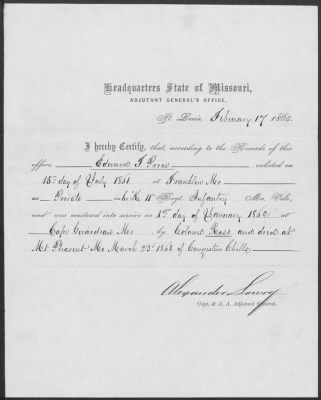 Headquarters State of Missouri,
ADJUTANT GENERAL'S OFFICE,
St. Louis, February 17 186
I hereby Certify, that, according to the Records of this
office, Edward T. Price enlisted on
15th day of July 1861 at Franklin Mo
as Private in Co. K 11 Regt Infantry Mo. Vols.
and was mustered into service on 1st day of January 1862 at
Cape Girardeau Mo by Colonel Ross and died at
Mt Pleasant Mo March 23d 186 of Congestive Chills
Alexander Lowry
Capt. & A. A. Adjutant General.